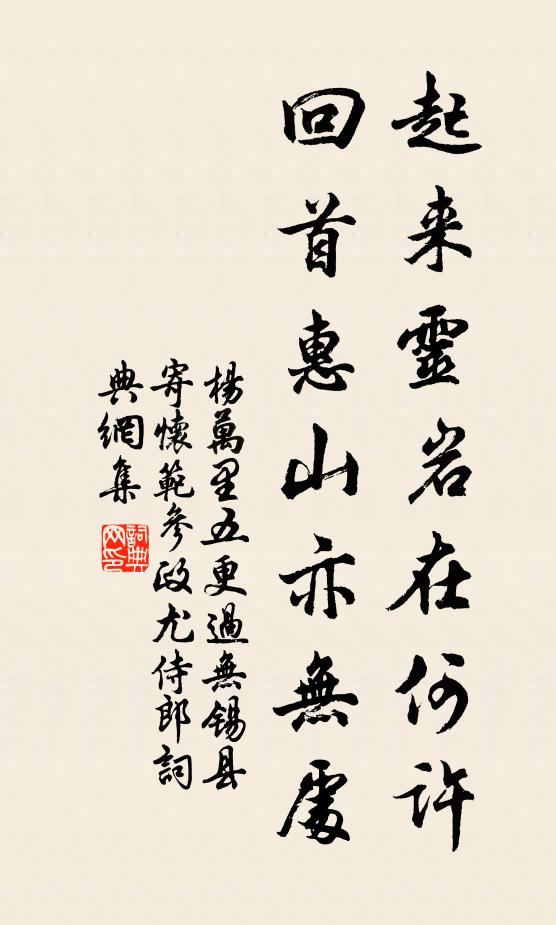 起来靈岩在何許
回首惠山亦無處
楊萬里五更過無錫县
寄懷範參政尤侍郎詞
典網集
詞典
网印